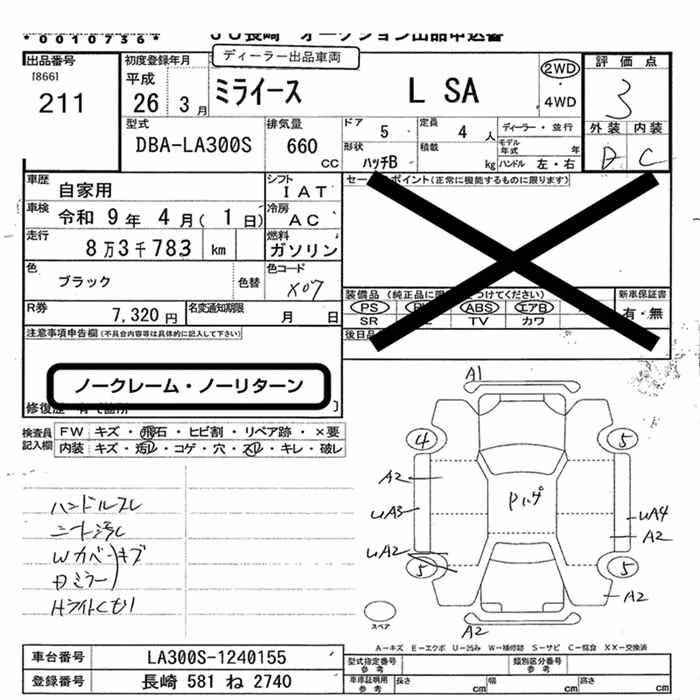 *0010736*
JU長崎 オークション出品申込書
ディーラー出品車両
出品番号
[866]
211
初度登録年月
平成
26年 3月
ミライース L SA
2WD
4WD
評価点
3
外装 内装
D C
型式
DBA-LA300S
排気量
660
CC
ドア 5
定員 4 人
形状 ハッチB
積載 kg
ディーラー・並行
モデル年式 年
ハンドル 左・右
車歴
自家用
シフト
IAT
車検
令和 9年 4月( 1日)
冷房
AC
走行
8万3千783 km
燃料
ガソリン
色
ブラック
色替
色コード
X07
R券
7,320円
名変通知期限
月 日
セールスポイント(正常に機能するものに限ります)
装備品
PS
ABS
エアB
SR
TV
カワ
新車保証書
有・無
後日品
注意事項申告欄(不具合内容等は具体的に記入して下さい)
ノークレーム・ノーリターン
修復歴
検査員
記入欄
FW キズ・飛石・ヒビ割・リペア跡・×要
内装 キズ・汚れ・コゲ・穴・スレ・キレ・破レ
ハンドルスレ
シート汚レ
Wカバーキズ
Dミラー
Hライトくもり
A1
4
5
A2
UA3
UA2
5
UA4
A2
5
A2
A2
スペア
A-キズ E-エクボ U-凹み W-補修跡 S-サビ C-腐食 XX-交換済
車台番号 LA300S-1240155
登録番号 長崎 581 ね 2740
型式指定番号
参考
類別区分番号
参考
車庫証明用
参考
長さ cm 幅 cm 高さ cm